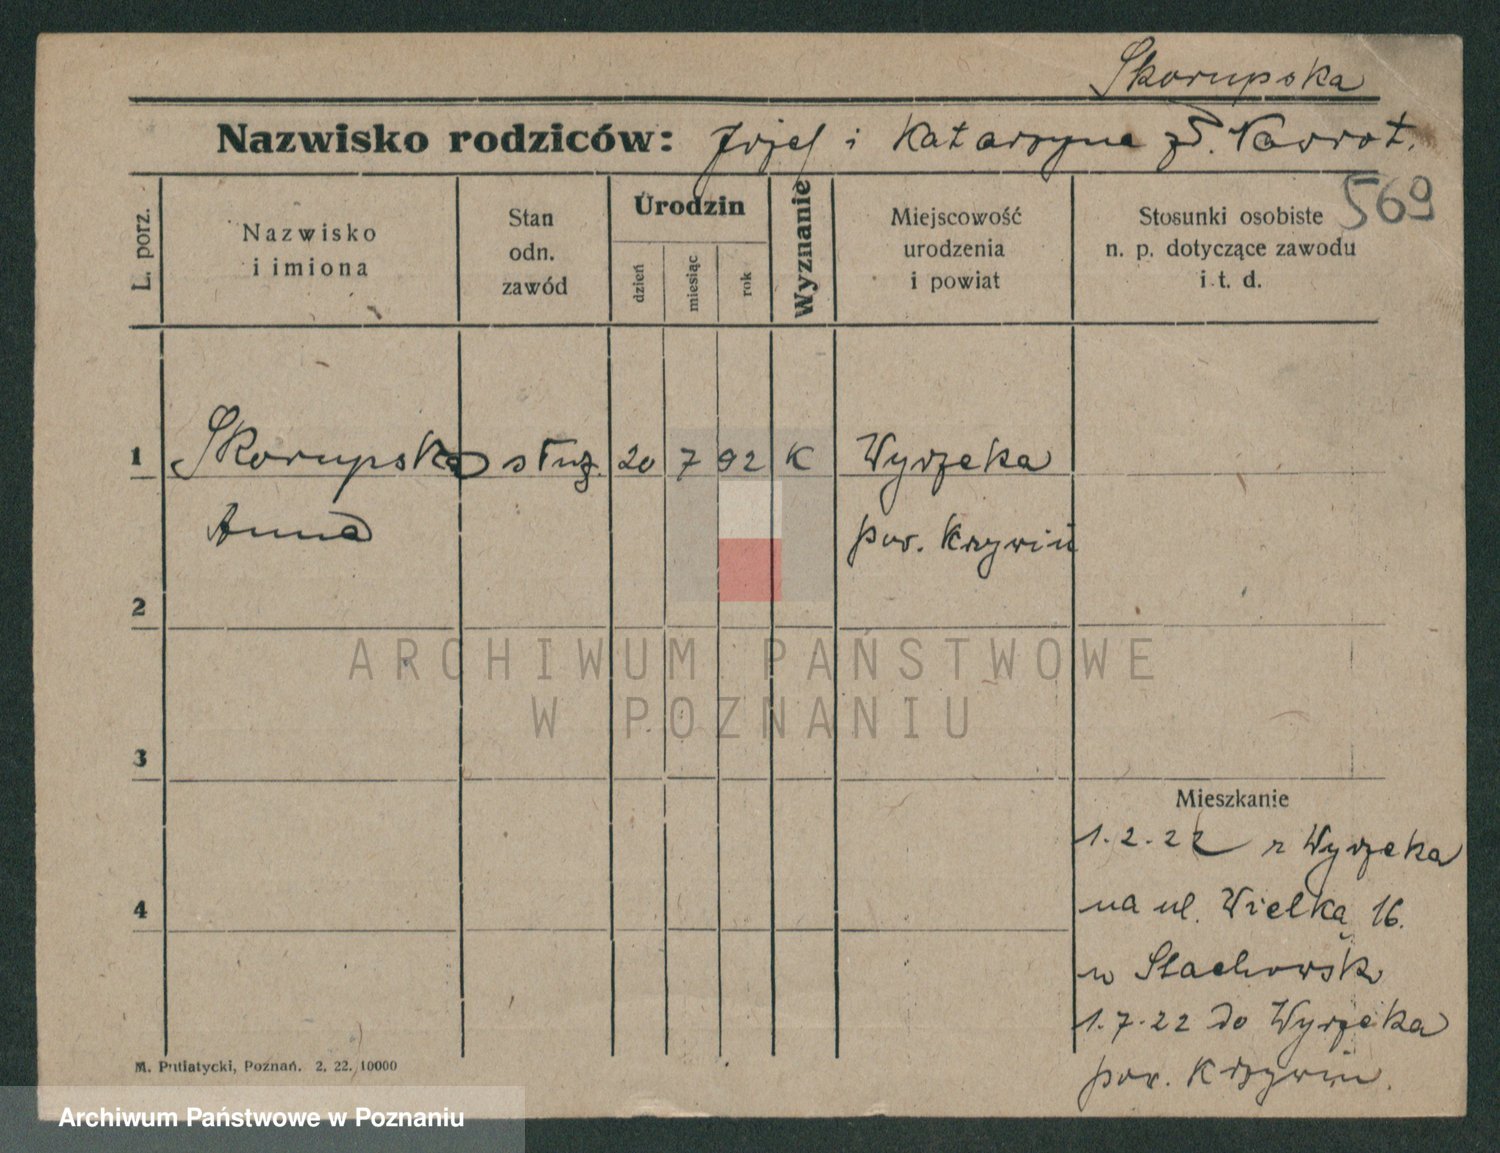 Skorupska
Nazwisko rodziców: Józef i Katarzyna zd. Nawrot.
569
L. porz.
Nazwisko
i imiona
Stan
odn.
zawód
Urodzin
dzień
miesiąc
rok
Wyznanie
Miejscowość
urodzenia
i powiat
Stosunki osobiste
n. p. dotyczące zawodu
i t. d.
1 Skorupska służ. 20 7 92 K Wyrzeka
Anna pow. Krzywiń
2
3
4
Mieszkanie
1.2.22 z Wyrzeka
na ul. Wielką 16.
u Stachowsk
1.7.22 do Wyrzeka
pow. Krzywiń.
M. Putiatycki, Poznań. 2. 22. 10000
ARCHIWUM PAŃSTWOWE
W POZNANIU
Archiwum Państwowe w Poznaniu